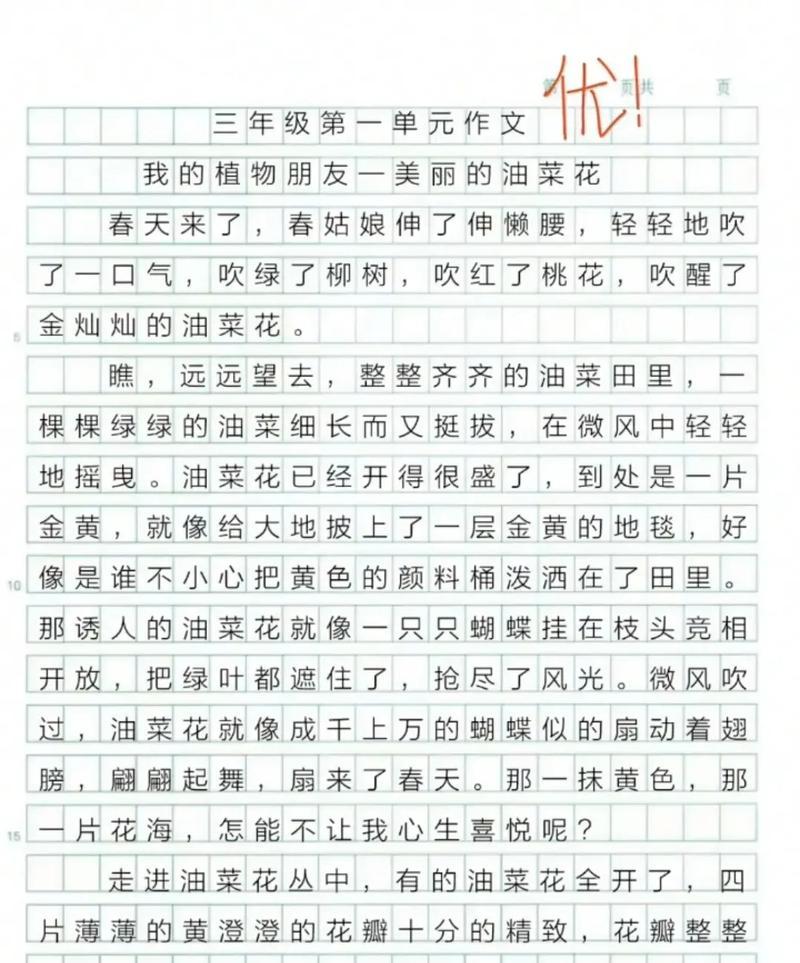 第 页共 页
优！
三年级第一单元作文
我的植物朋友—美丽的油菜花
春天来了，春姑娘伸了伸懒腰，轻轻地吹
了一口气，吹绿了柳树，吹红了桃花，吹醒了
5 金灿灿的油菜花。
瞧，远远望去，整整齐齐的油菜田里，一
棵棵绿绿的油菜细长而又挺拔，在微风中轻轻
地摇曳。油菜花已经开得很盛了，到处是一片
金黄，就像给大地披上了一层金黄的地毯，好
10 像是谁不小心把黄色的颜料桶泼洒在了田里。
那诱人的油菜花就像一只只蝴蝶挂在枝头竞相
开放，把绿叶都遮住了，抢尽了风光。微风吹
过，油菜花就像成千上万的蝴蝶似的扇动着翅
膀，翩翩起舞，扇来了春天。那一抹黄色，那
15 一片花海，怎能不让我心生喜悦呢？
走进油菜花丛中，有的油菜花全开了，四
片薄薄的黄澄澄的花瓣十分的精致，花瓣整整